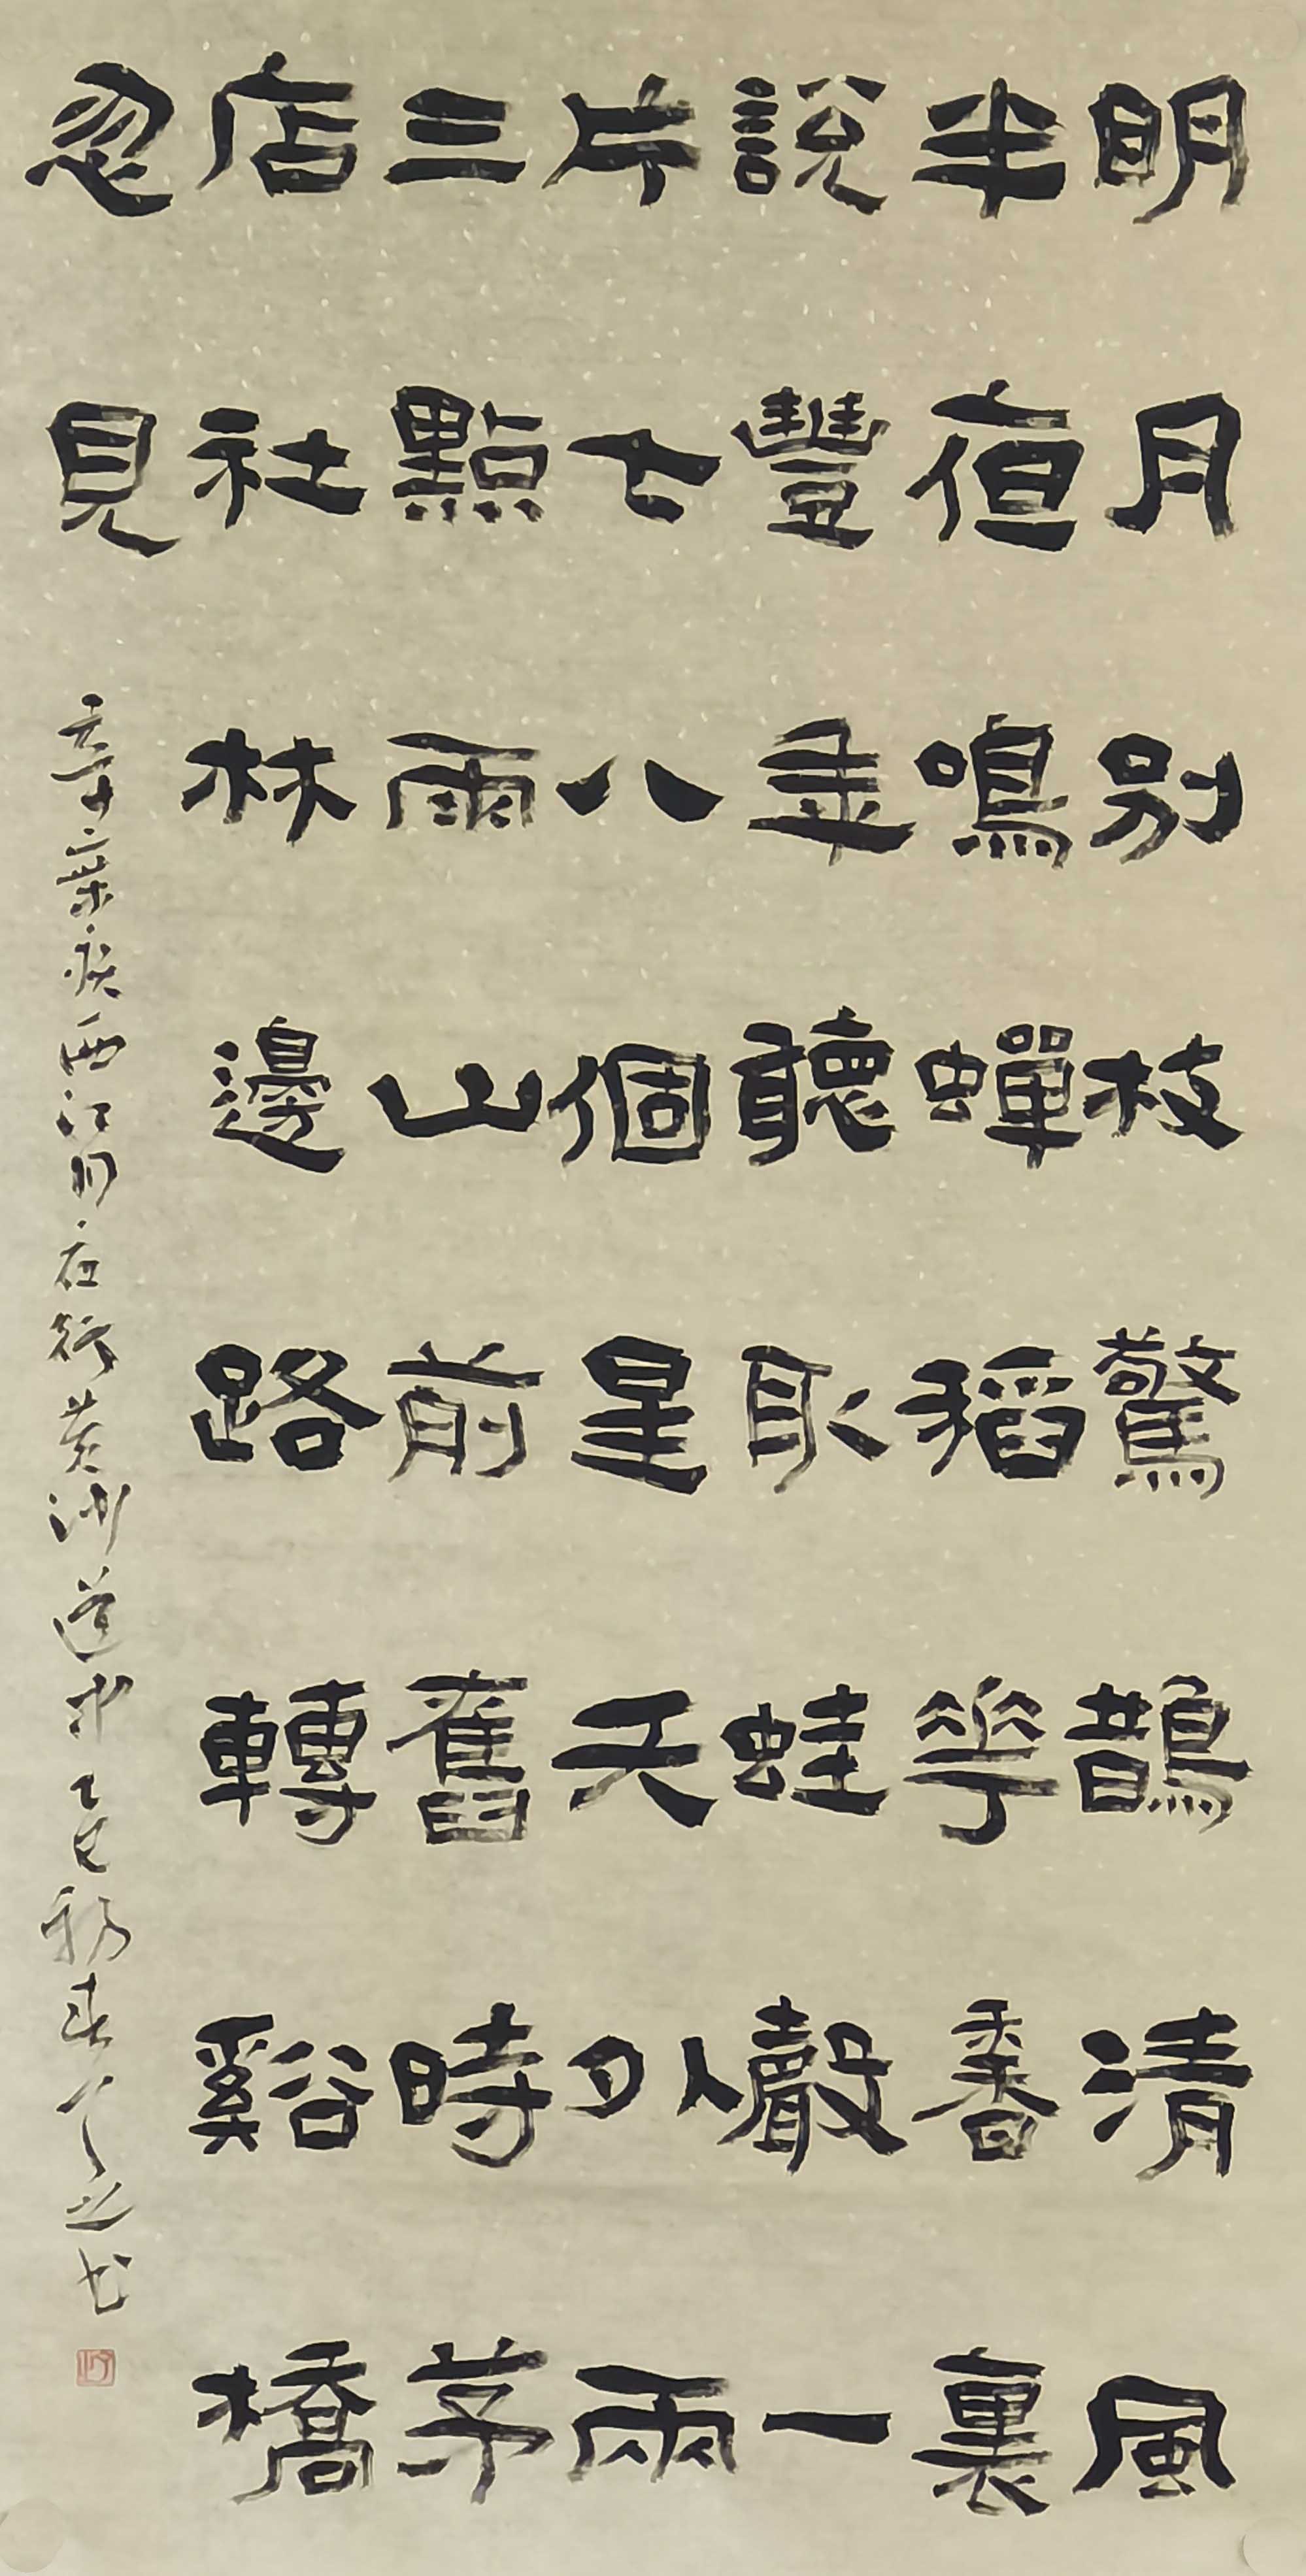 明月別枝驚鵲清風
半夜鳴蟬稻華香裏
說豐年聽取蛙聲一
片七八個星天外兩
三點雨山前舊時茅
店社林邊路轉谿橋
忽見
辛棄疾西江月夜行黃沙道中乙巳初春之书